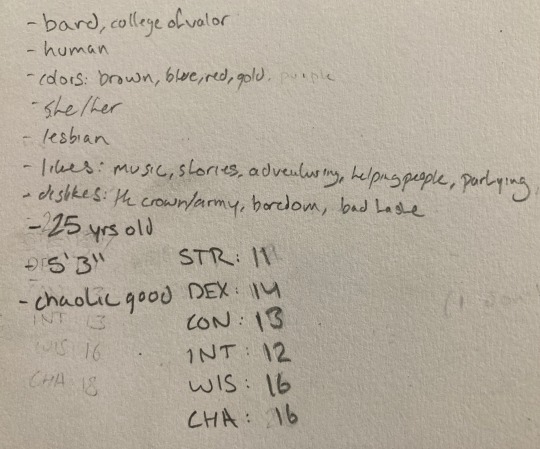 - bard, college of valor
- human
- colors: brown, blue, red, gold, purple
- she/her
- lesbian
- likes: music, stories, adventuring, helping people, partying
- dislikes: the crown/army, boredom, bad taste
- 25 yrs old
- 5'3"
STR: 11
- chaotic good DEX: 14
INT 13 CON: 13
WIS 16 INT: 12
CHA 18 WIS: 16
CHA: 16